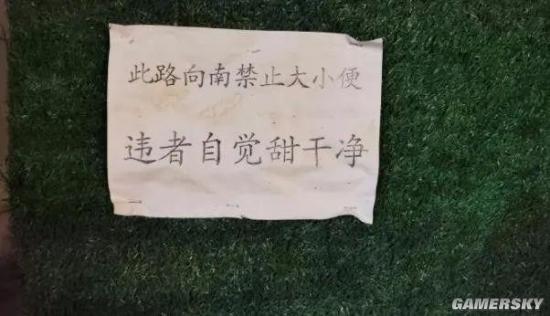 此路向南禁止大小便
违者自觉甜干净
GAMERSKY